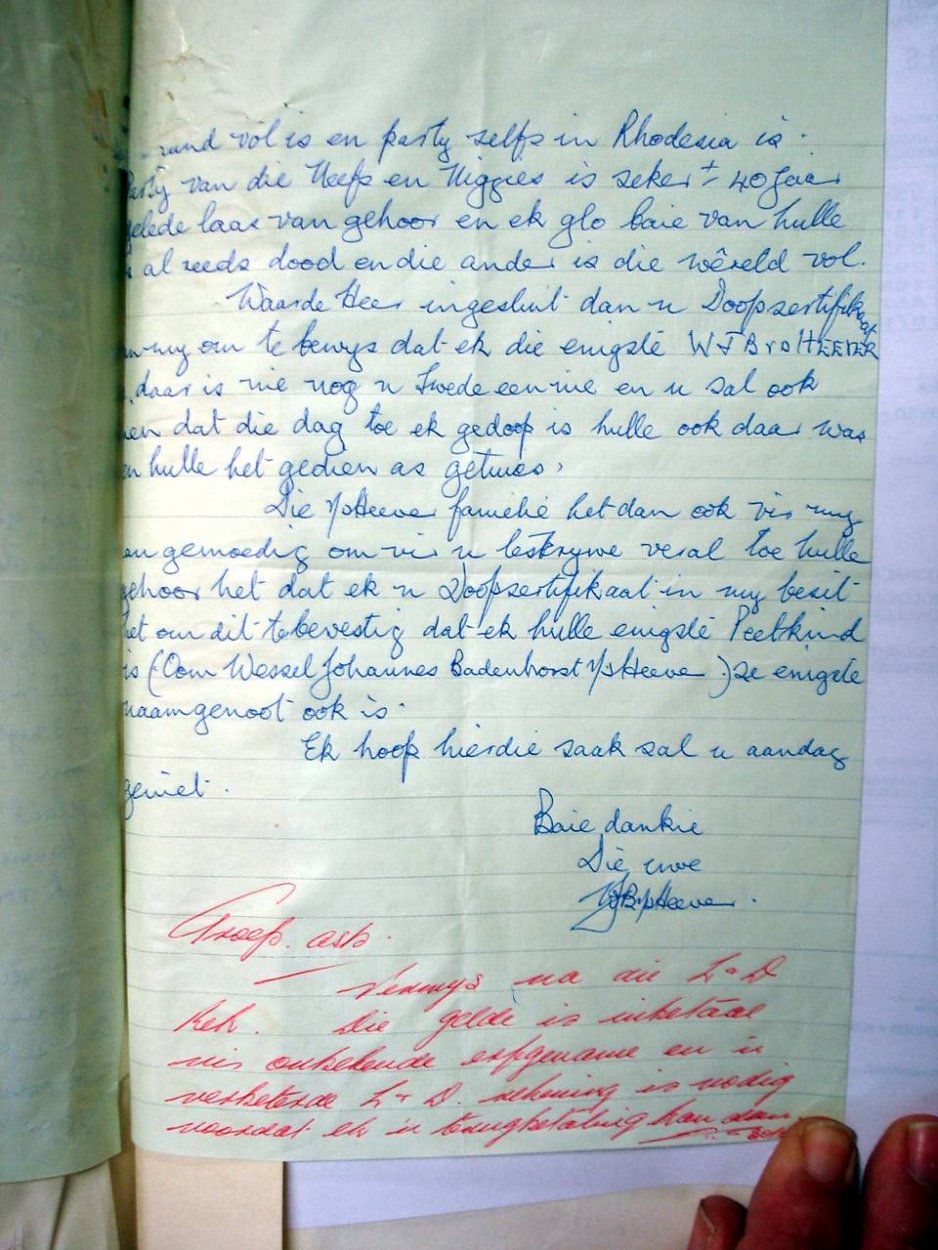 rand vol is en party selfs in Rhodesia is.
Party van die Neefs en Niggies is seker ± 40 Jaar
gelede laas van gehoor en ek glo baie van hulle
al reeds dood en die ander is die wêreld vol.
Waarde Heer ingesluit dan 'n Doopsertifikaat
my om te bewys dat ek die enigste WJB vd HEEVER
daar is nie nog 'n Twede een nie en u sal ook
dat die dag toe ek gedoop is hulle ook daar was
en hulle het gedien as getuies,
Die v/d Heever familie het dan ook vir my
aan gemoedig om vir u te skrywe veral toe hulle
gehoor het dat ek 'n Doopsertifikaat in my besit
het om dit te bevestig dat ek hulle enigste Peetkind
is (Oom Wessel Johannes Badenhorst v/d Heever.) se enigste
naamgenoot ook is.
Ek hoop hierdie saak sal u aandag
geniet.
Baie dankie
Die uwe
WJB v/d Heever.
Proef. asb.
Verwys na die L & D
Rek. Die gelde is inbetaal
vir onbekende erfgename en 'n
verbeterde L & D. rekening is nodig
voordat ek 'n terugbetaling kan doen